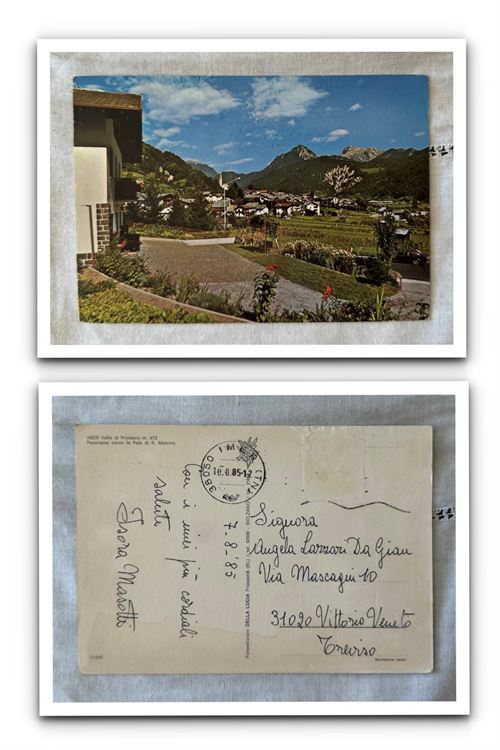 IMER Valle di Primiero m. 673
Panorama verso le Pale di S. Martino
38050 IMER (TN)
10.8.85-12
7.8.85
Con i miei più cordiali
saluti
Isora Masotti
Fotoedizioni DELLA LUCIA
Signora
Angela Lazzari Da Gian
Via Mascagni 10
31020 Vittorio Veneto
Treviso
Riproduzione vietata